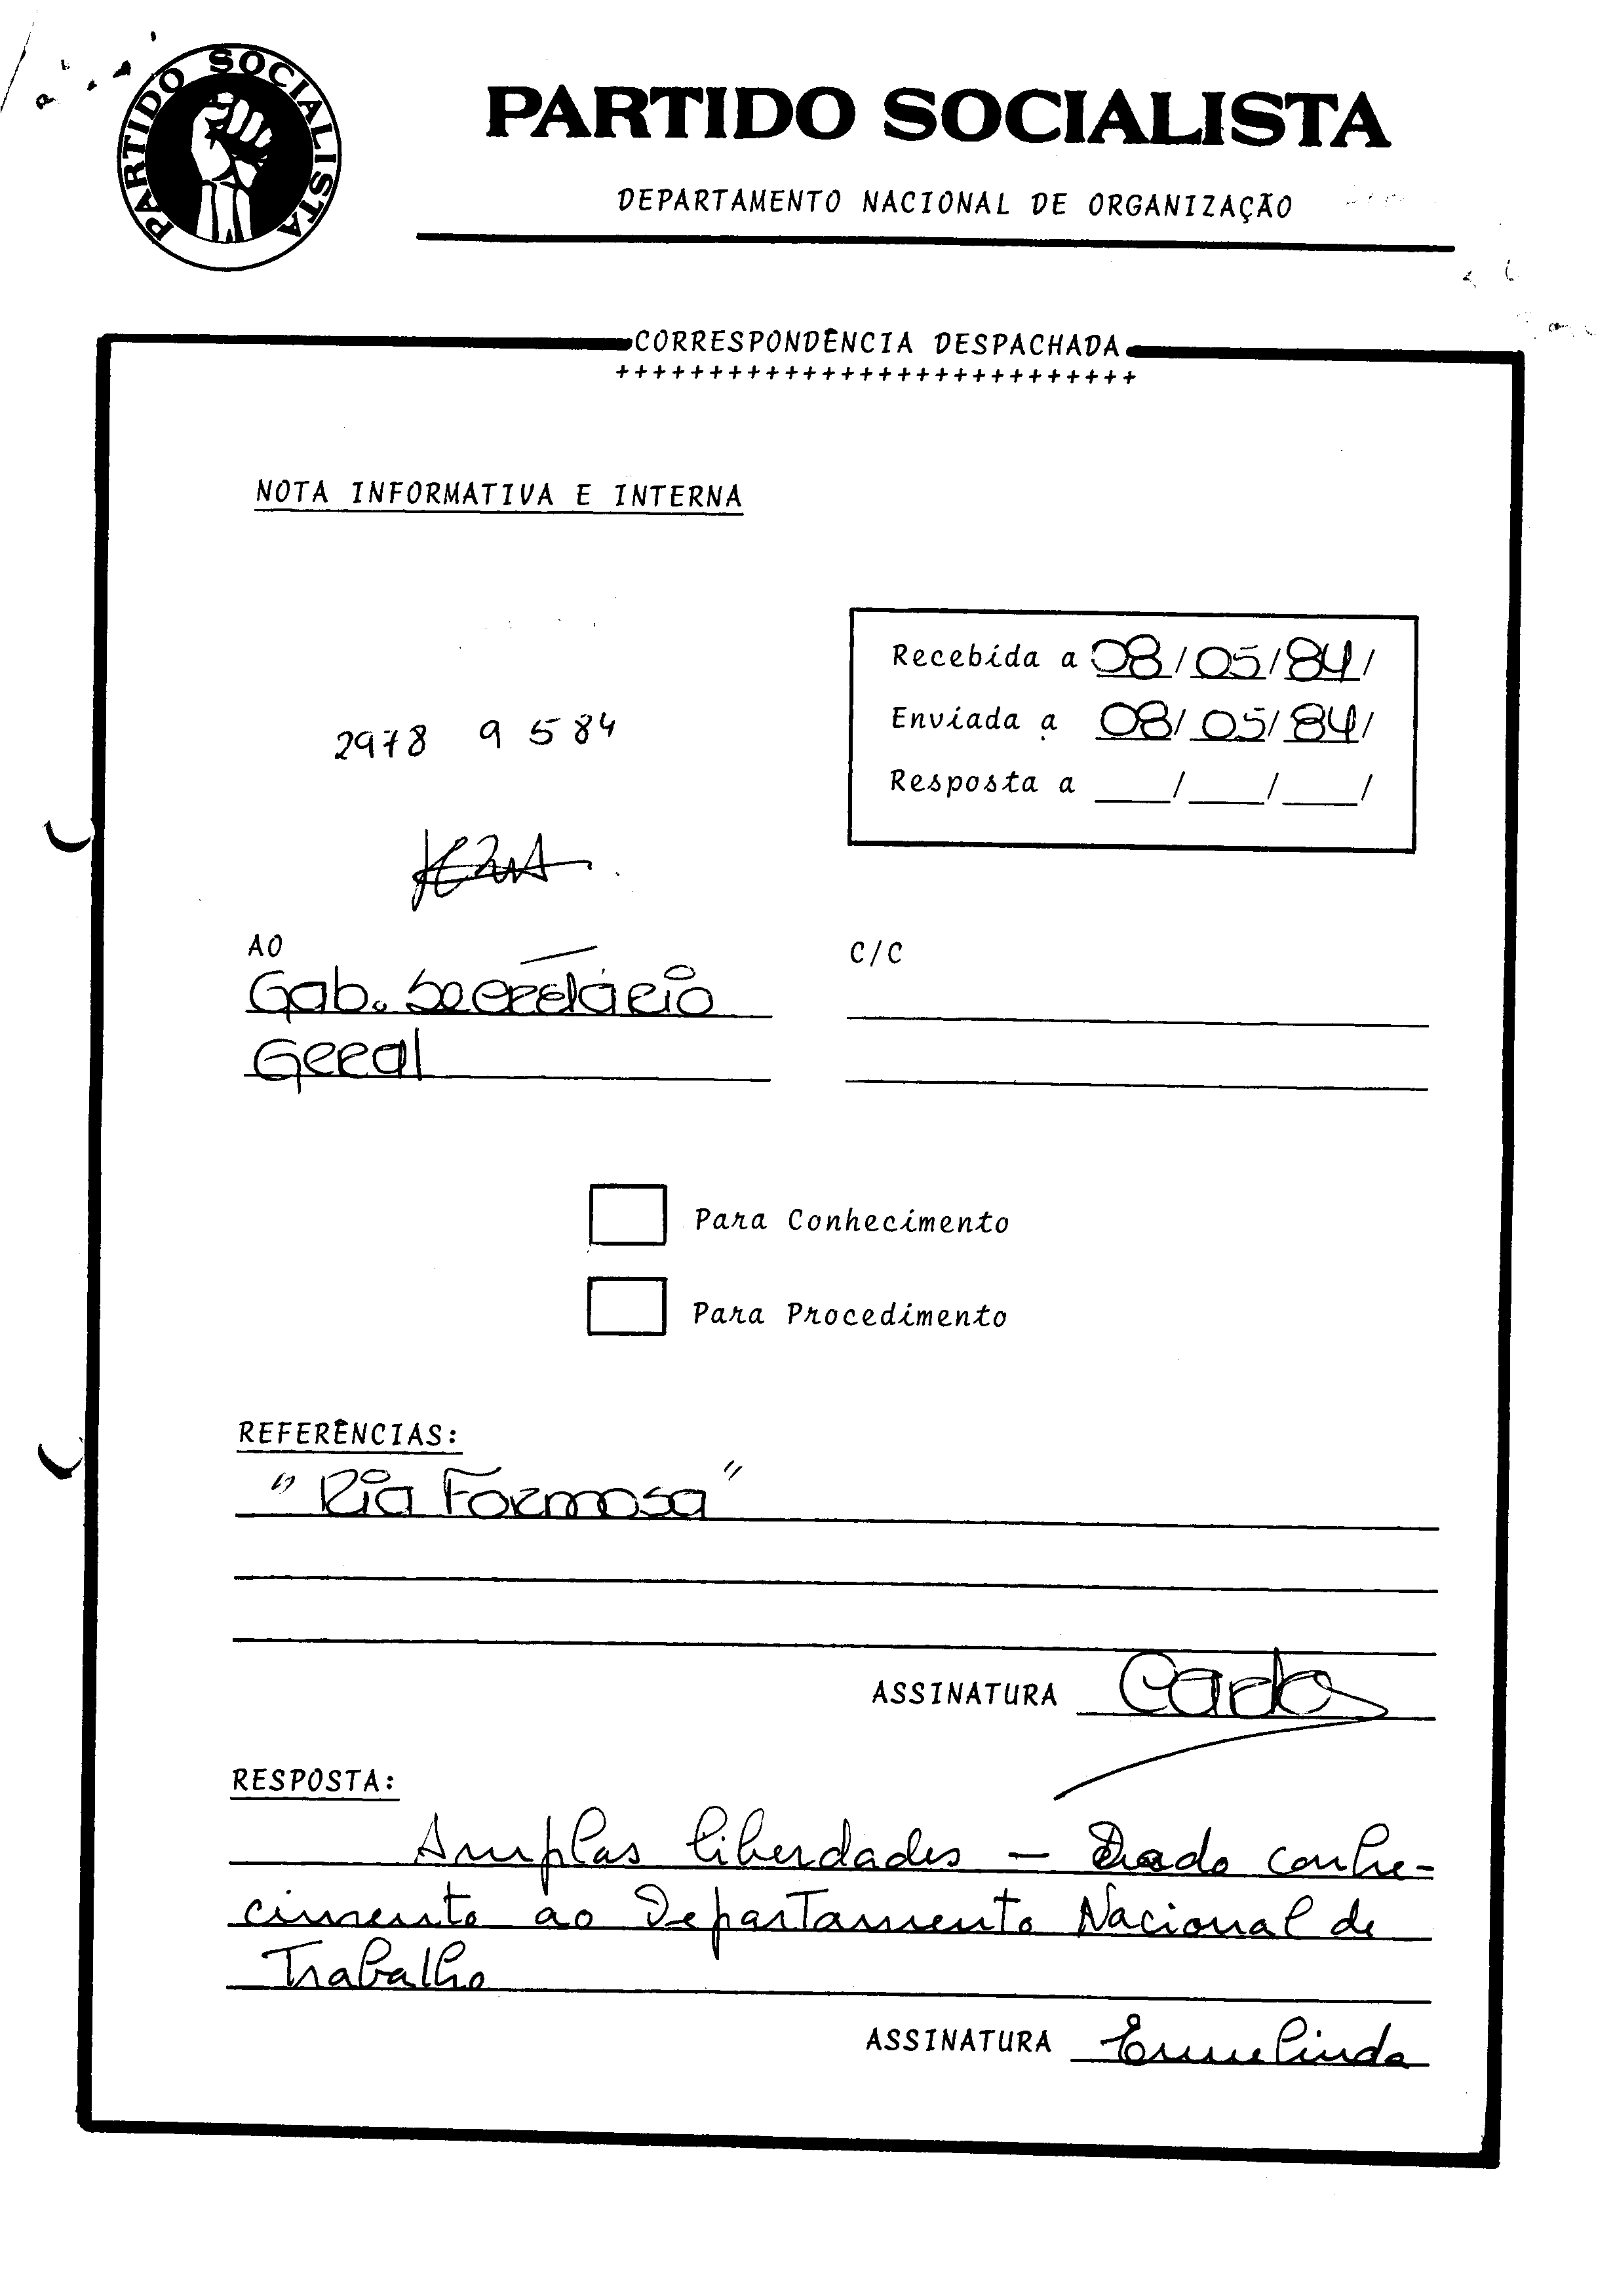 PARTIDO SOCIALISTA
PARTIDO SOCIALISTA
DEPARTAMENTO NACIONAL DE ORGANIZAÇÃO
CORRESPONDÊNCIA DESPACHADA
++++++++++++++++++++++++++++
NOTA INFORMATIVA E INTERNA
Recebida a 08/05/84/
Enviada a 08/05/84/
Resposta a ___/___/___/
2978 9 5 84
AO
C/C
Gab. Secretário
Geral
Para Conhecimento
Para Procedimento
REFERÊNCIAS:
"Ria Formosa"
ASSINATURA Carlos
RESPOSTA:
Amplas liberdades - Dado conhe-
cimento ao Departamento Nacional de
Trabalho
ASSINATURA Ermelinda